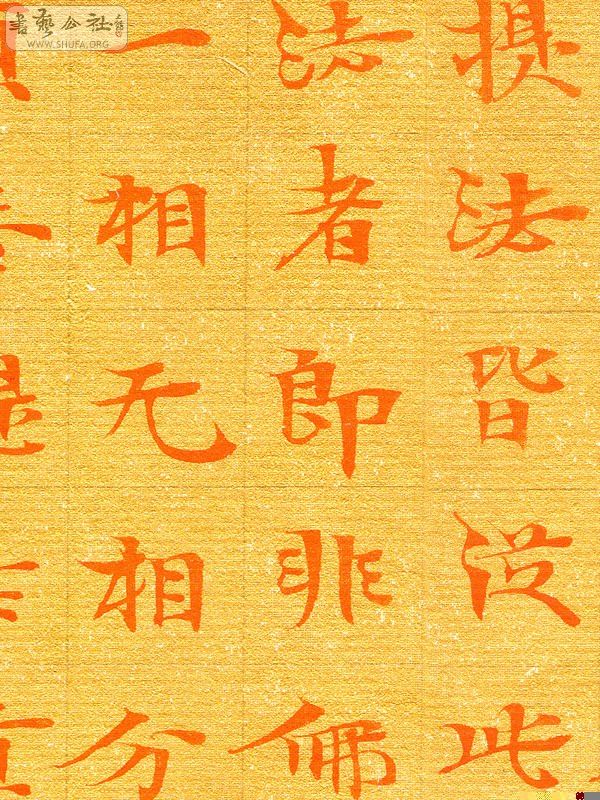 書藝公社
WWW.SHUFA.ORG
提法皆從此
法者即非佛
一相无相分